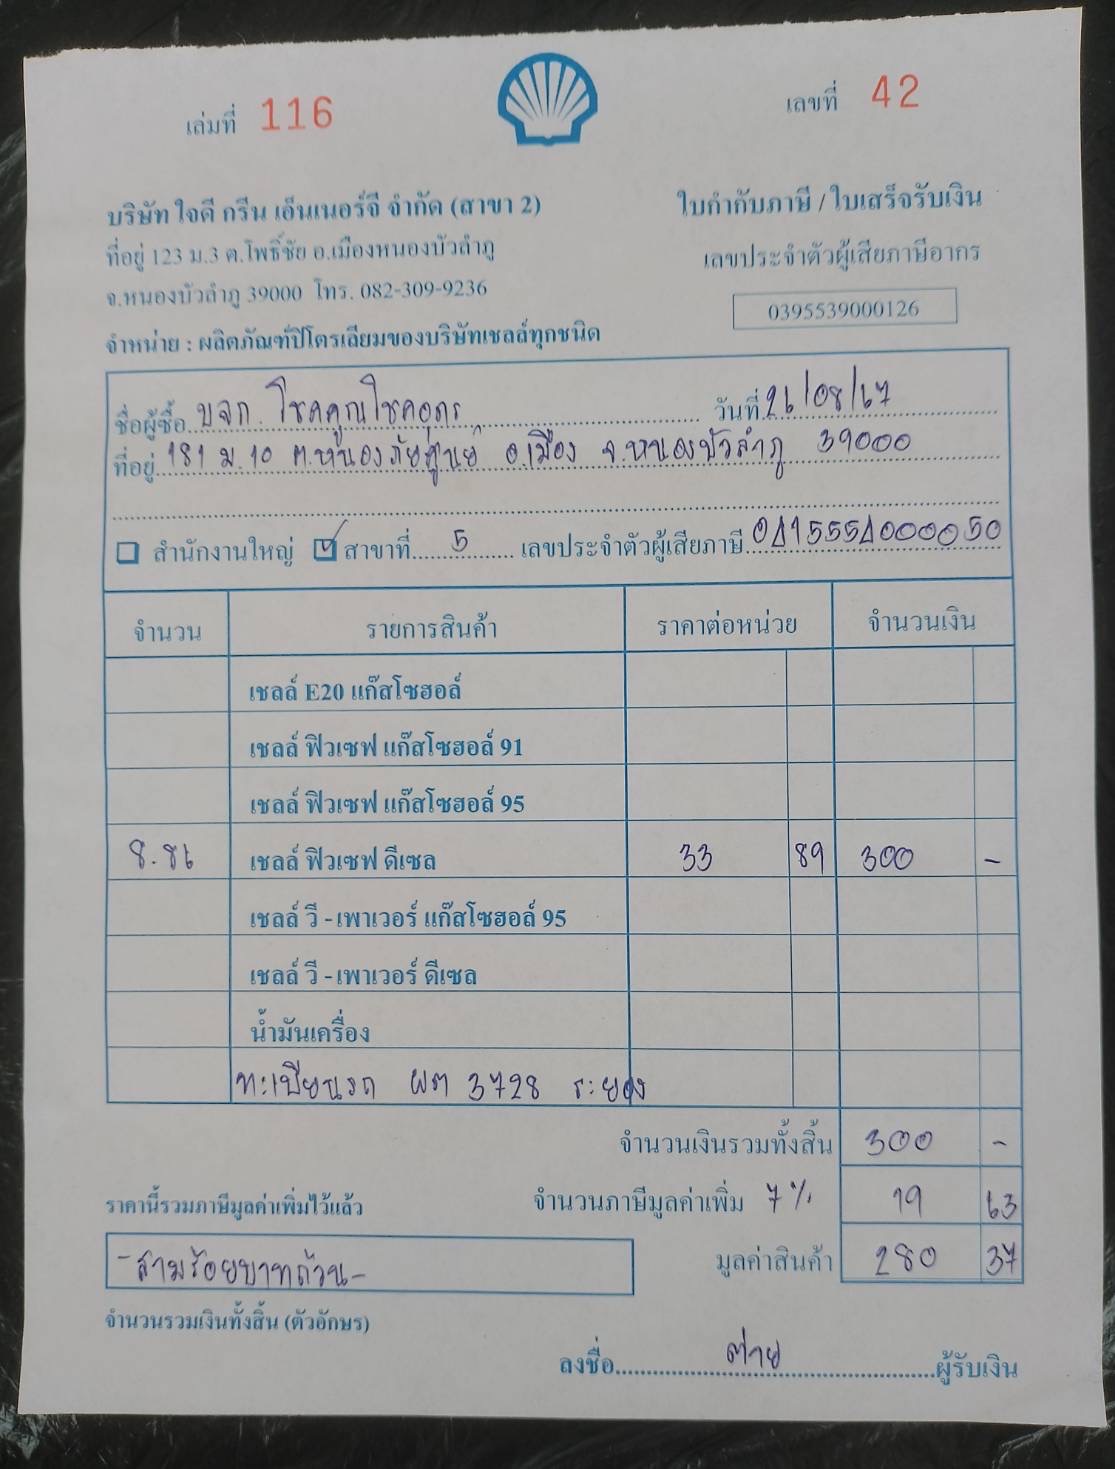 เล่มที่ 116
เลขที่ 42
บริษัท ใจดี กรีน เอ็นเนอร์จี จำกัด (สาขา 2)
ใบกำกับภาษี / ใบเสร็จรับเงิน
ที่อยู่ 123 ม.3 ต.โพธิ์ชัย อ.เมืองหนองบัวลำภู
เลขประจำตัวผู้เสียภาษีอากร
จ.หนองบัวลำภู 39000 โทร. 082-309-9236
0395539000126
จำหน่าย : ผลิตภัณฑ์ปิโตรเลียมของบริษัทเชลล์ทุกชนิด
ชื่อผู้ซื้อ บจก. โชคคูณโชคอุดร วันที่ 26/08/67
ที่อยู่ 181 ม.10 ต.หนองภัยศูนย์ อ.เมือง จ.หนองบัวลำภู 39000
สำนักงานใหญ่ สาขาที่ 5 เลขประจำตัวผู้เสียภาษี 0415551000050
จำนวน รายการสินค้า ราคาต่อหน่วย จำนวนเงิน
เชลล์ E20 แก๊สโซฮอล์
เชลล์ ฟิวเซฟ แก๊สโซฮอล์ 91
เชลล์ ฟิวเซฟ แก๊สโซฮอล์ 95
8.86 เชลล์ ฟิวเซฟ ดีเซล 33 89 300 -
เชลล์ วี - เพาเวอร์ แก๊สโซฮอล์ 95
เชลล์ วี - เพาเวอร์ ดีเซล
น้ำมันเครื่อง
ทะเบียนรถ ผต 3728 ระยอง
จำนวนเงินรวมทั้งสิ้น 300 -
ราคานี้รวมภาษีมูลค่าเพิ่มไว้แล้ว จำนวนภาษีมูลค่าเพิ่ม 7% 19 63
-สามร้อยบาทถ้วน- มูลค่าสินค้า 280 37
จำนวนรวมเงินทั้งสิ้น (ตัวอักษร)
ลงชื่อ ต่าย ผู้รับเงิน